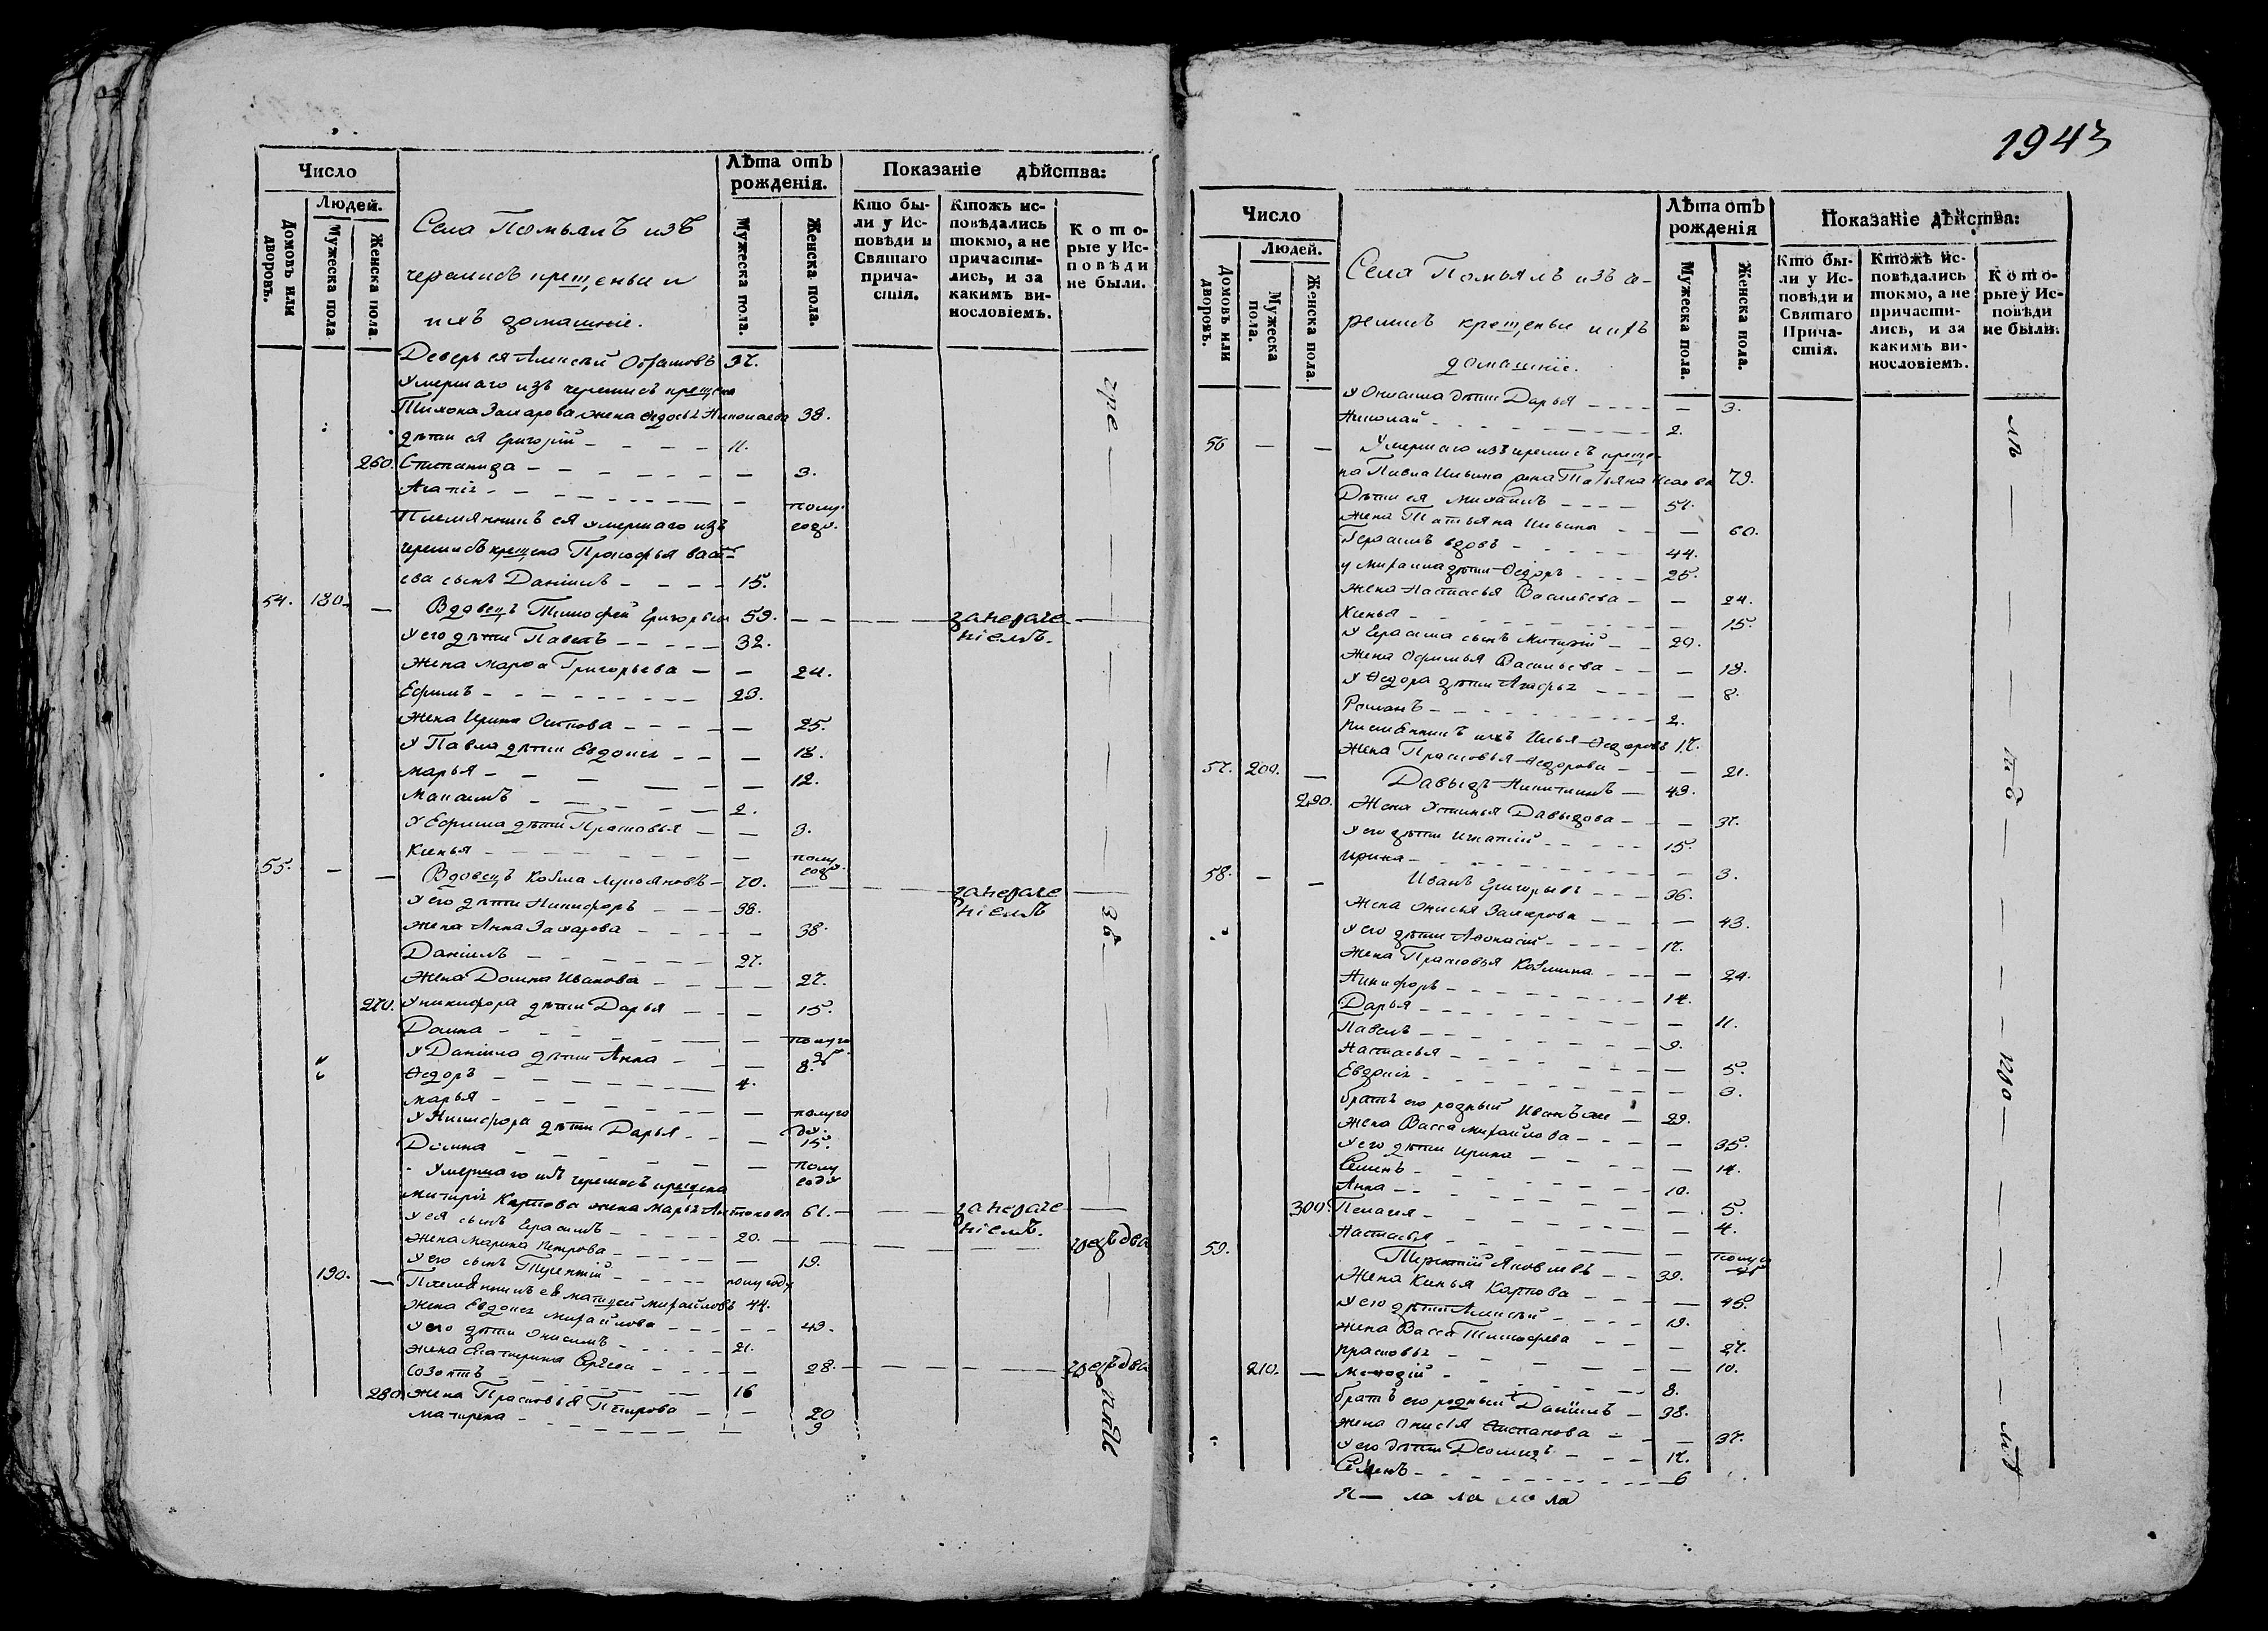 Число
Людей.
Домовъ или дворовъ.
Мужеска пола
Женска пола.
Села Помьялъ изъ
черемисъ крещеные и
ихъ домашніе.
Лѣта отъ рожденія.
Мужеска пола.
Женска пола.
Показаніе дѣйства:
Кто бы-
ли у Ис-
повѣди и
Святаго
прича-
стія.
Ктожъ ис-
повѣдались
токмо, а не
причасти-
лись, и за
какимъ ви-
нословіемъ.
Кото-
рые у Ис-
повѣди
не были.
Деверь ея Алексѣй 37.
Умершаго изъ черемисъ крещена
Тихона Захарова жена Федосья Николаева 38.
дѣти ея Григорій 11.
260. Степанида 3.
Агапія полу-
году.
Племянникъ ея умершаго изъ
черемисъ крещена Прокофья Васи-
ева сынъ Даніилъ 15.
54. 180. Вдовецъ Тимофей Григорьевъ 59. за нераче
ніемъ.
У его дѣти Павелъ 32.
Жена Марфа Григорьева 24.
Ефимъ 23.
Жена Ирина Осипова 25.
У Павла дѣти Евдокія 18.
Марья 12.
2.
У Ефима дѣти Прасковья 3.
Ксенья полу-
году.
55. Вдовецъ Козма Лукояновъ 70. за нераче
ніемъ
У его дѣти Никифоръ 38.
Жена Анна Захарова 38.
Даніилъ 27.
Жена Домна Иванова 27.
270. У Никифора дѣти Дарья 15.
Домна полуго
ду
У Даніила дѣти Анна 8.
Ѳедоръ 4.
Марья полуго
ду.
У Никифора дѣти Дарья 15.
Домна полу
году
Умершаго изъ черемисъ крещена
Карпова жена Марья Антонова 61. за нераче
ніемъ.
У ея сынъ Герасимъ 20.
Жена Марина Петрова 19.
У его сынъ Терентій полугоду
190. Племянникъ ея Матвей Михайловъ 44.
Жена Евдокія Михайлова 43.
У его дѣти Онисимъ 21.
Жена Екатерина 28.
Созонтъ 16
280. Жена Прасковья Петрова 20
Матрена 9
1943
Число
Людей.
Домовъ или дворовъ.
Мужеска пола.
Женска пола.
Села Помьялъ изъ че-
ремисъ крещеные и ихъ
домашніе.
Лѣта отъ рожденія
Мужеска пола.
Женска пола.
Показаніе дѣйства:
Кто бы-
ли у Ис-
повѣди и
Святаго
Прича-
стія.
Ктожъ ис-
повѣдались
токмо, а не
причасти-
лись, и за
какимъ ви-
нословіемъ.
Кото-
рые у Ис-
повѣди
не были.
У Онисима дѣти Дарья 3.
Николай 2.
56 Умершаго изъ черемисъ креще-
на Павла Ильина жена Татьяна Исаева 79.
Дѣти ея Михаилъ 57.
Жена Татьяна Ильина 60.
Герасимъ вдовъ 44.
у Михаила дѣти Ѳедоръ 25.
Жена Настасья Васильева 24.
Ксенья 15.
У Герасима сынъ 20.
Жена Офимья Васильева 18.
У Ѳедора дѣти Агафья 8.
Романъ 2.
Племянникъ ихъ Илья Ѳедоровъ 17.
Жена Прасковья Ѳедорова 21.
57. 200. Давыдъ Никитинъ 49.
290. Жена Устинья Давыдова 37.
У его дѣти Игнатій 15.
Ирина 3.
58. Иванъ Григорьевъ 36.
Жена Онисья Захарова 43.
У его дѣти Афонасій 17.
Жена Прасковья Козмина 24.
Никифоръ 14.
Дарья 11.
Павелъ 9.
Настасья 5.
Евдокія 3.
братъ его родный Иванъ же 29.
Жена Васса Михайлова 35.
У его дѣти Ирина 14.
Семенъ 10.
Анна 5.
300. Пелагея 4.
Настасья полуго
ду
59. Терентій Яковлевъ 39.
Жена Ксенья Карпова 45.
У его дѣти Алексѣй 19.
Жена Васса Тимофеева 27.
Прасковья 10.
210. Меѳодій 8.
братъ его родный Даніилъ 38.
Жена Онисья Степанова 37.
У его дѣти Деомидъ 17.
Семенъ 6